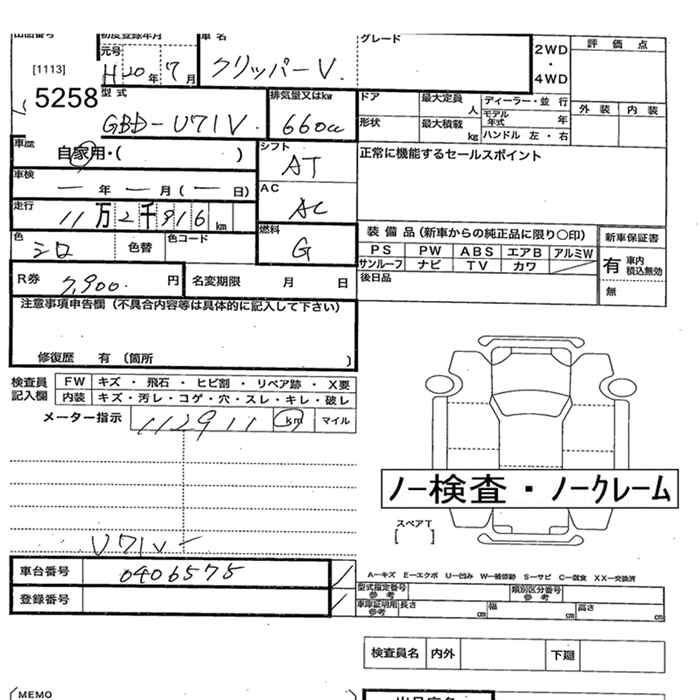 初度登録年月 車名 グレード
[1113] 元号 H20年 7月 クリッパーV. 2WD・4WD 評価点
5258 型式 GBD-U71V 排気量又はkw 660cc ドア 最大定員 人 ディーラー・並 行 外装 内装
形状 最大積載 kg モデル年式 年
ハンドル 左・右
車歴 自家用・( ) シフト AT 正常に機能するセールスポイント
車検 ー 年 ー 月 ( ー 日) AC AC
走行 11万2千916km 燃料 G 装備品 (新車からの純正品に限り○印) 新車保証書
色 シロ 色替 色コード PS PW ABS エアB アルミW 有 車内積込無効
サンルーフ ナビ TV カワ
R券 7,900. 円 名変期限 月 日 後日品 無
注意事項申告欄 (不具合内容等は具体的に記入して下さい)
修復歴 有 〔箇所 〕
検査員記入欄 FW キズ ・ 飛石 ・ ヒビ割 ・ リペア跡 ・ X要
内装 キズ・汚レ・コゲ・穴・スレ・キレ・破レ
メーター指示 112911 km マイル
ノー検査・ノークレーム
スペアT
[ ]
U71V-
車台番号 0406575
登録番号
A―キズ E―エクボ U―凹み W―補修跡 S―サビ C―腐食 XX―交換済
型式指定番号 参考 類別区分番号 参考
車庫証明用 参考 長さ cm 幅 cm 高さ cm
検査員名 内外 下廻
MEMO